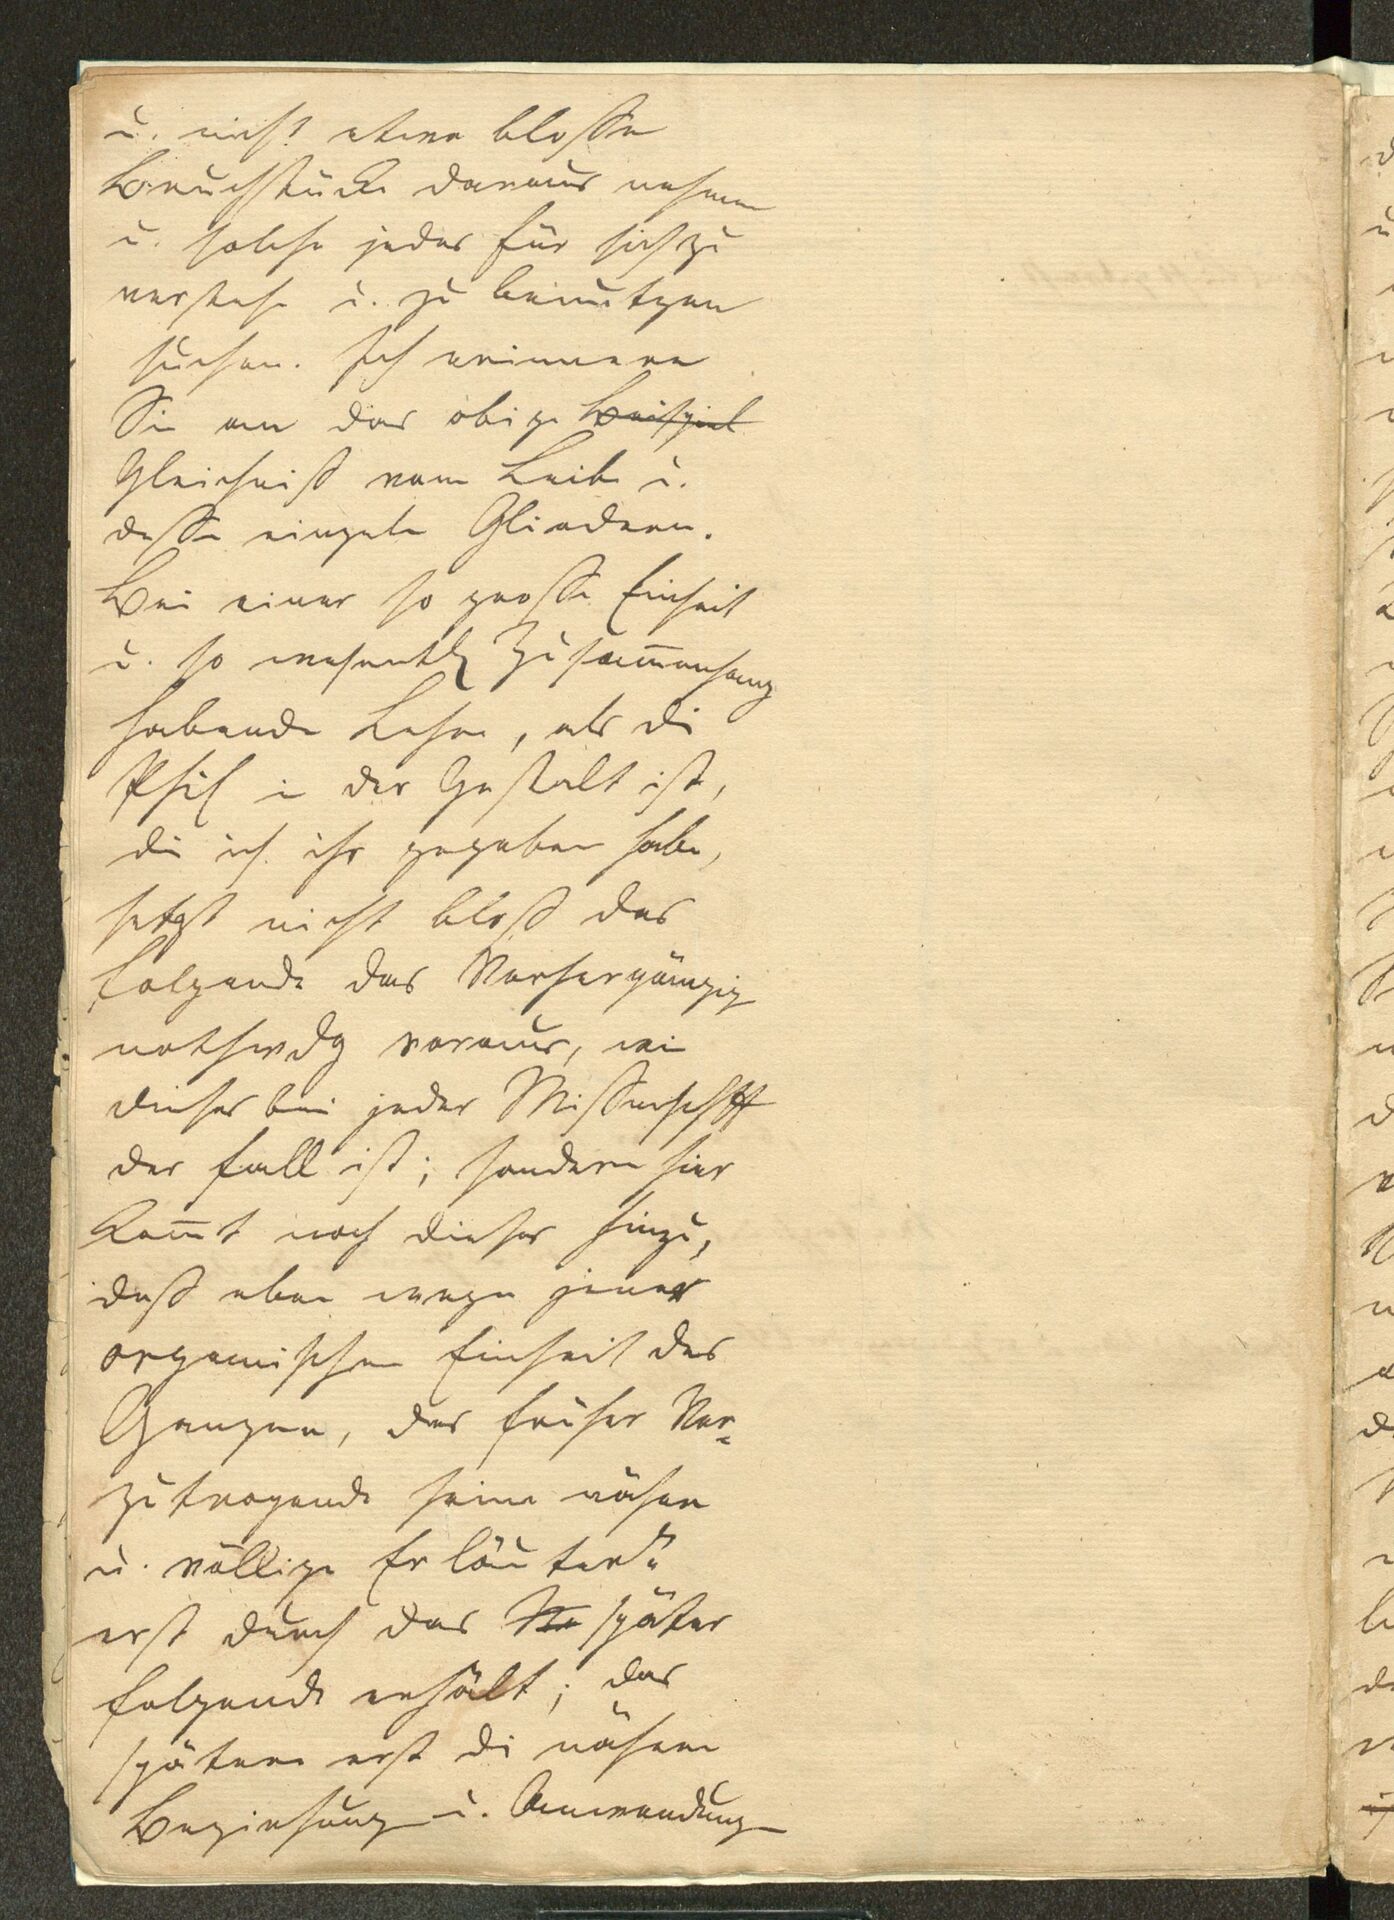 u. nicht etwa blosse
Bruchstücke daraus nehmen
u. solche jedes für sich zu
verstehe u. zu benutzen
suchen. Ich erinnere
Sie an das obige Beispiel
Gleichniß vom Leibe u.
desse einzele Gliedern.
Bei einer so grosse Einheit
u. so wesentl Zusam̅enhang
habende Lehre, als die
Phil in der Gestalt ist,
die ich ihr gegeben habe,
setzt nicht bloß das
folgende das Vorhergängig
nothwdg voraus, wie
dieses bei jeder Wissenschft
der Fall ist; sondern hier
kom̅t noch dieses hinzu,
daß eben wege jener
organischen Einheit des
Ganzen, das früher Vor-
zutragende seine nähere
u. völlige Erläuter⸗
erst durch das später
folgende erhält; das
spätere erst die nähere
Beziehung u. Anwendung